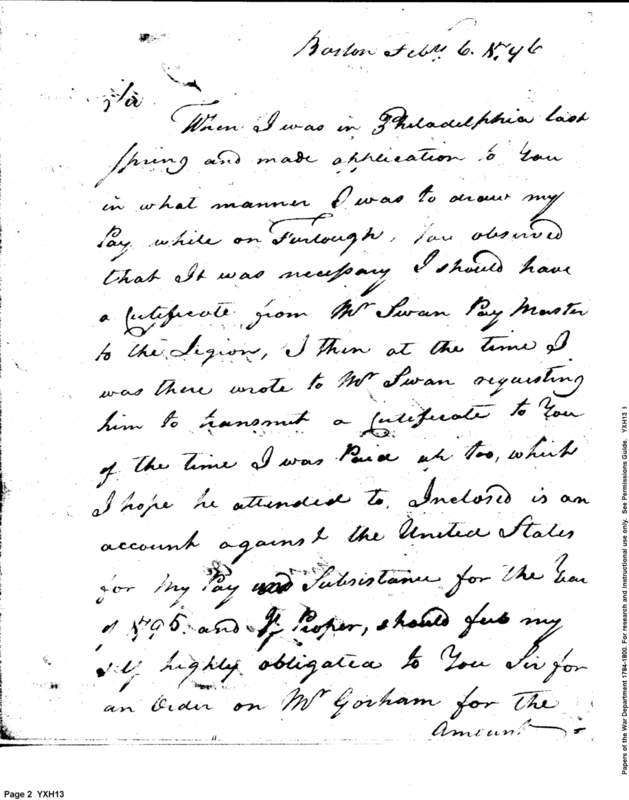 Boston Feby 6. 1796
Sir
When I was in Philadelphia last
spring and made application to You
in what manner I was to draw my
Pay while on Furlough, You observed
that It was necessary I should have
a Certificate from Mr Swan Pay Master
to the Legion, I then at the time I
was there wrote to Mr Swan requesting
him to transmit a Certificate to You
of the time I was Paid up too, which
I hope he attended to. Inclosed is an
account against the United States
for My Pay and Subsistance for the Year
of 1795. and If Proper, should feel my
self highly obligated to You Sir for
an Order on Mr Gorham for the
Amount
Page 2 YXH13
Papers of the War Department 1784-1800. For research and Instructional use only. See Permissions Guide. YXH13 }